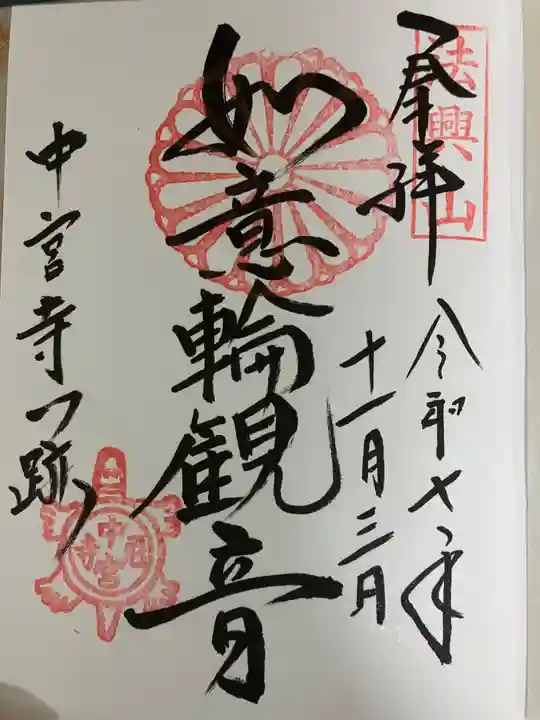 法興山
奉拝
令和七年
十一月三日
如意輪観音
中宮寺門跡
中宮寺